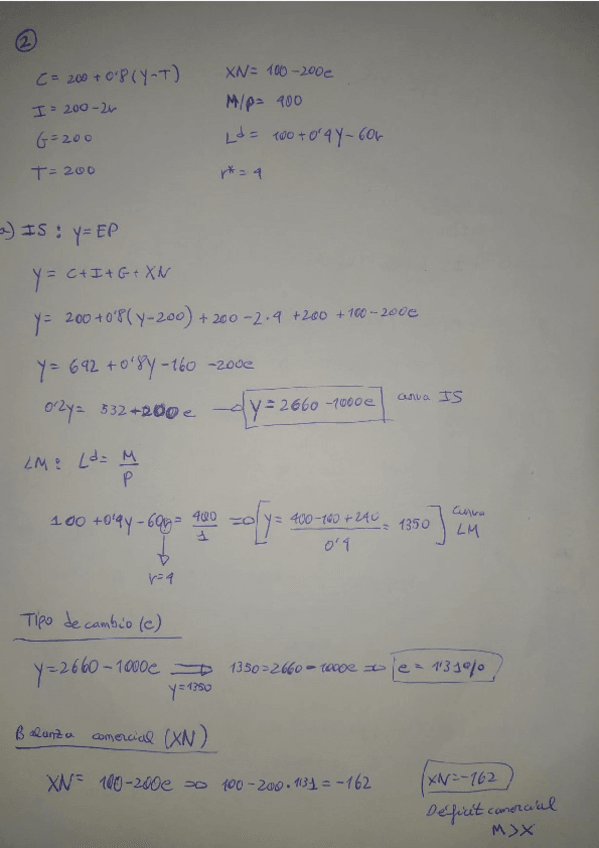 2
C = 200 + 0'8 (Y-T)    XN = 100 - 200e
I = 200 - 2r    M/P = 400
G = 200    Ld = 100 + 0'4Y - 60r
T = 200    r* = 4
a) IS : Y = EP
Y = C + I + G + XN
Y = 200 + 0'8 (Y-200) + 200 - 2·4 + 200 + 100 - 200e
Y = 692 + 0'8Y - 160 - 200e
0'2Y = 532 + 200e → Y = 2660 - 1000e curva IS
LM : Ld = M/P
100 + 0'4Y - 60r = 400/1 ⇒ [Y = (400-100+240)/0'4 = 1350] Curva LM
↓
r = 4
Tipo de cambio (e)
Y = 2660 - 1000e ⇒ 1350 = 2660 - 1000e ⇒ e = 1'31%
Y = 1350
Balanza comercial (XN)
XN = 100 - 200e ⇒ 100 - 200 · 1'31 = -162    XN = -162
Déficit comercial
M > X